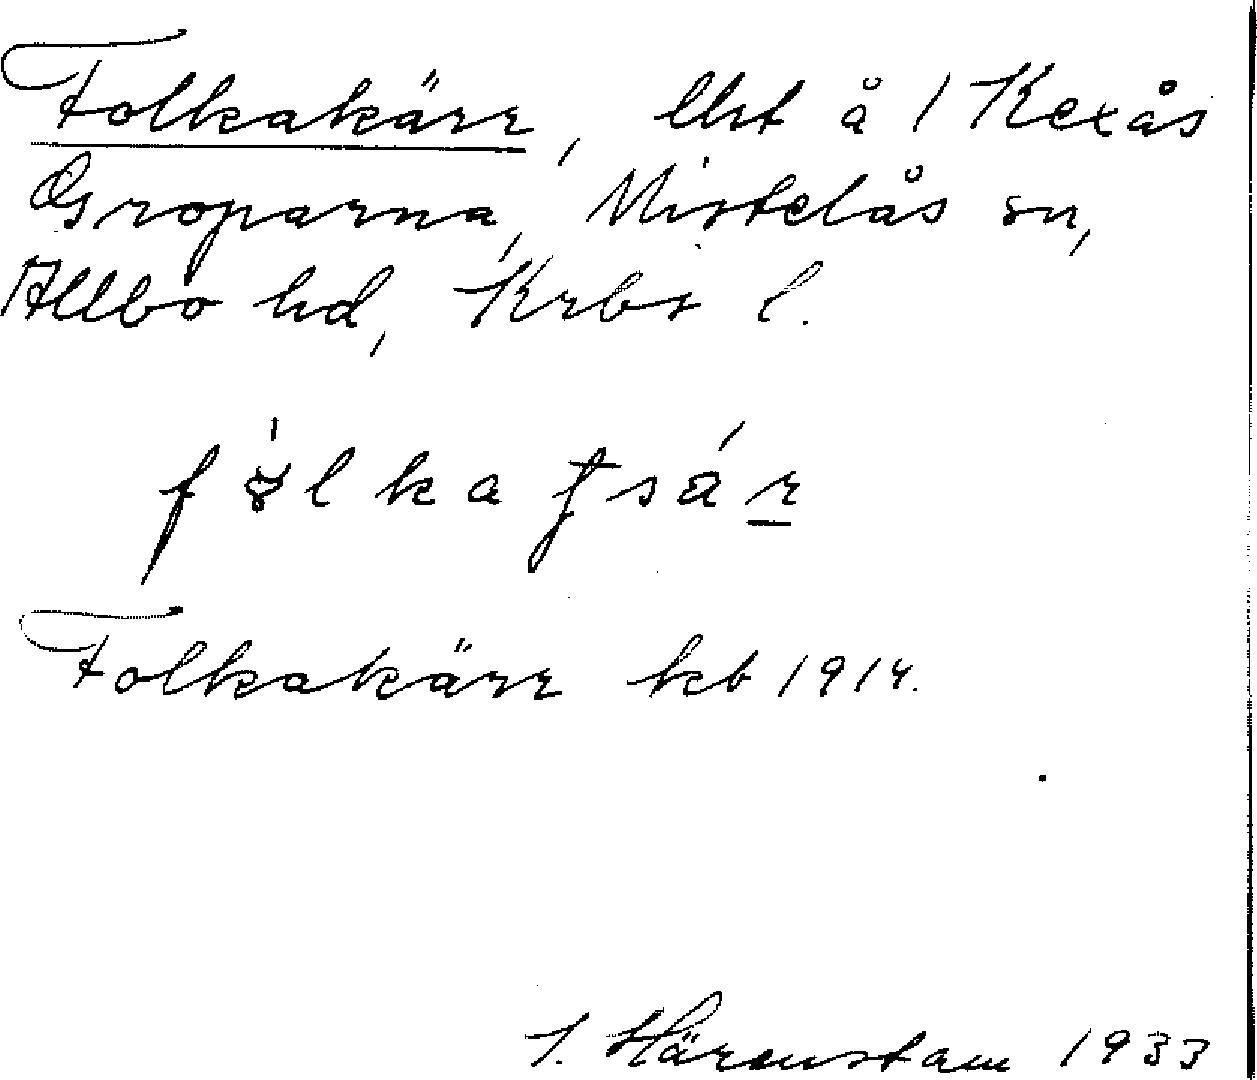 Folkakärr, lht å 1 Kexås
Groparna, Mistelås sn,
Allbo hd, Krbs l.
Folkakärr kb 1914.
J. Härenstam 1933